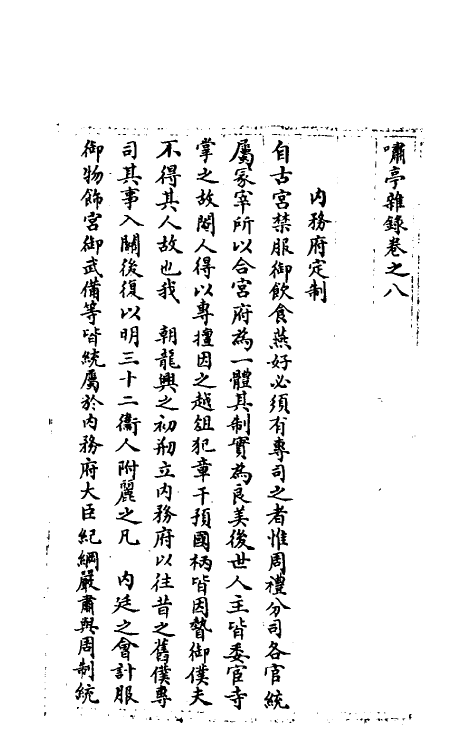 嘯亭雜錄卷之八
內務府定制
自古宮禁服御飲食燕好必須有專司之者惟周禮分司各官統
屬冢宰所以合宮府為一體其制實為良美後世人主皆委宦寺
掌之故閹人得以專擅因之越俎犯章干預國柄皆因暬御僕夫
不得其人故也我　朝龍興之初剏立內務府以往昔之舊僕專
司其事入關後復以明三十二衞人附麗之凡　內廷之會計服
御物飾宮御武備等皆統屬於內務府大臣紀綱嚴肅與周制統